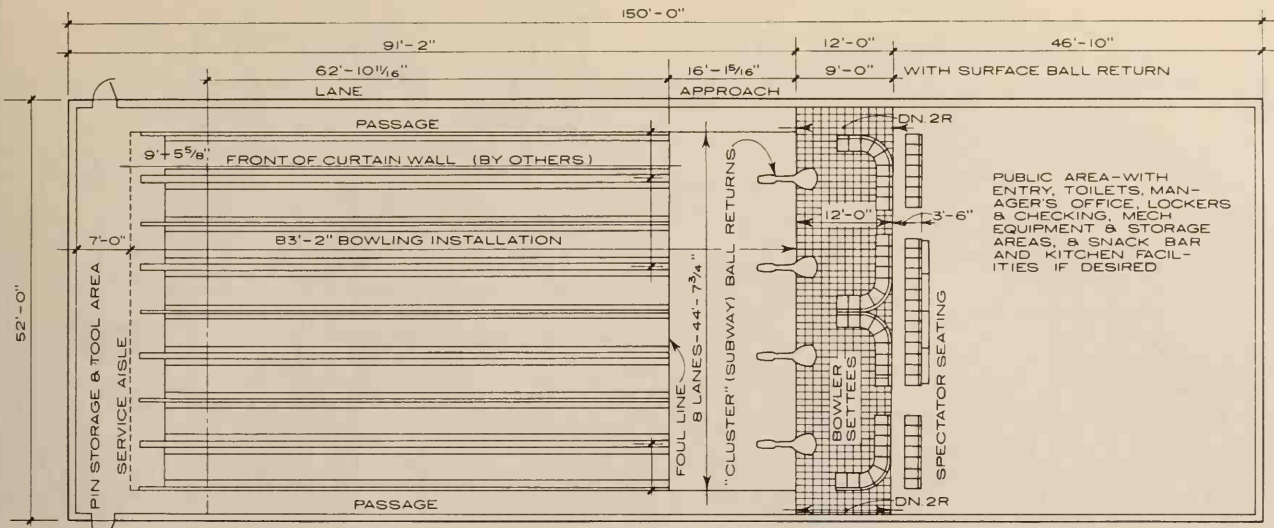 150'-0"
91'-2"
12'-0"
46'-10"
62'-10 11/16"
16'-1 5/16"
9'-0"
WITH SURFACE BALL RETURN
LANE
APPROACH
PASSAGE
DN. 2R
9'+5 5/8"
FRONT OF CURTAIN WALL (BY OTHERS)
PUBLIC AREA-WITH
ENTRY, TOILETS, MAN-
AGER'S OFFICE, LOCKERS
& CHECKING, MECH
EQUIPMENT & STORAGE
AREAS, & SNACK BAR
AND KITCHEN FACIL-
ITIES IF DESIRED
12'-0"
3'-6"
7'-0"
83'-2" BOWLING INSTALLATION
52'-0"
PIN STORAGE & TOOL AREA
SERVICE AISLE
FOUL LINE
8 LANES-44'-7 3/4"
"CLUSTER" (SUBWAY) BALL RETURNS
BOWLER
SETTEES
SPECTATOR SEATING
PASSAGE
DN. 2R